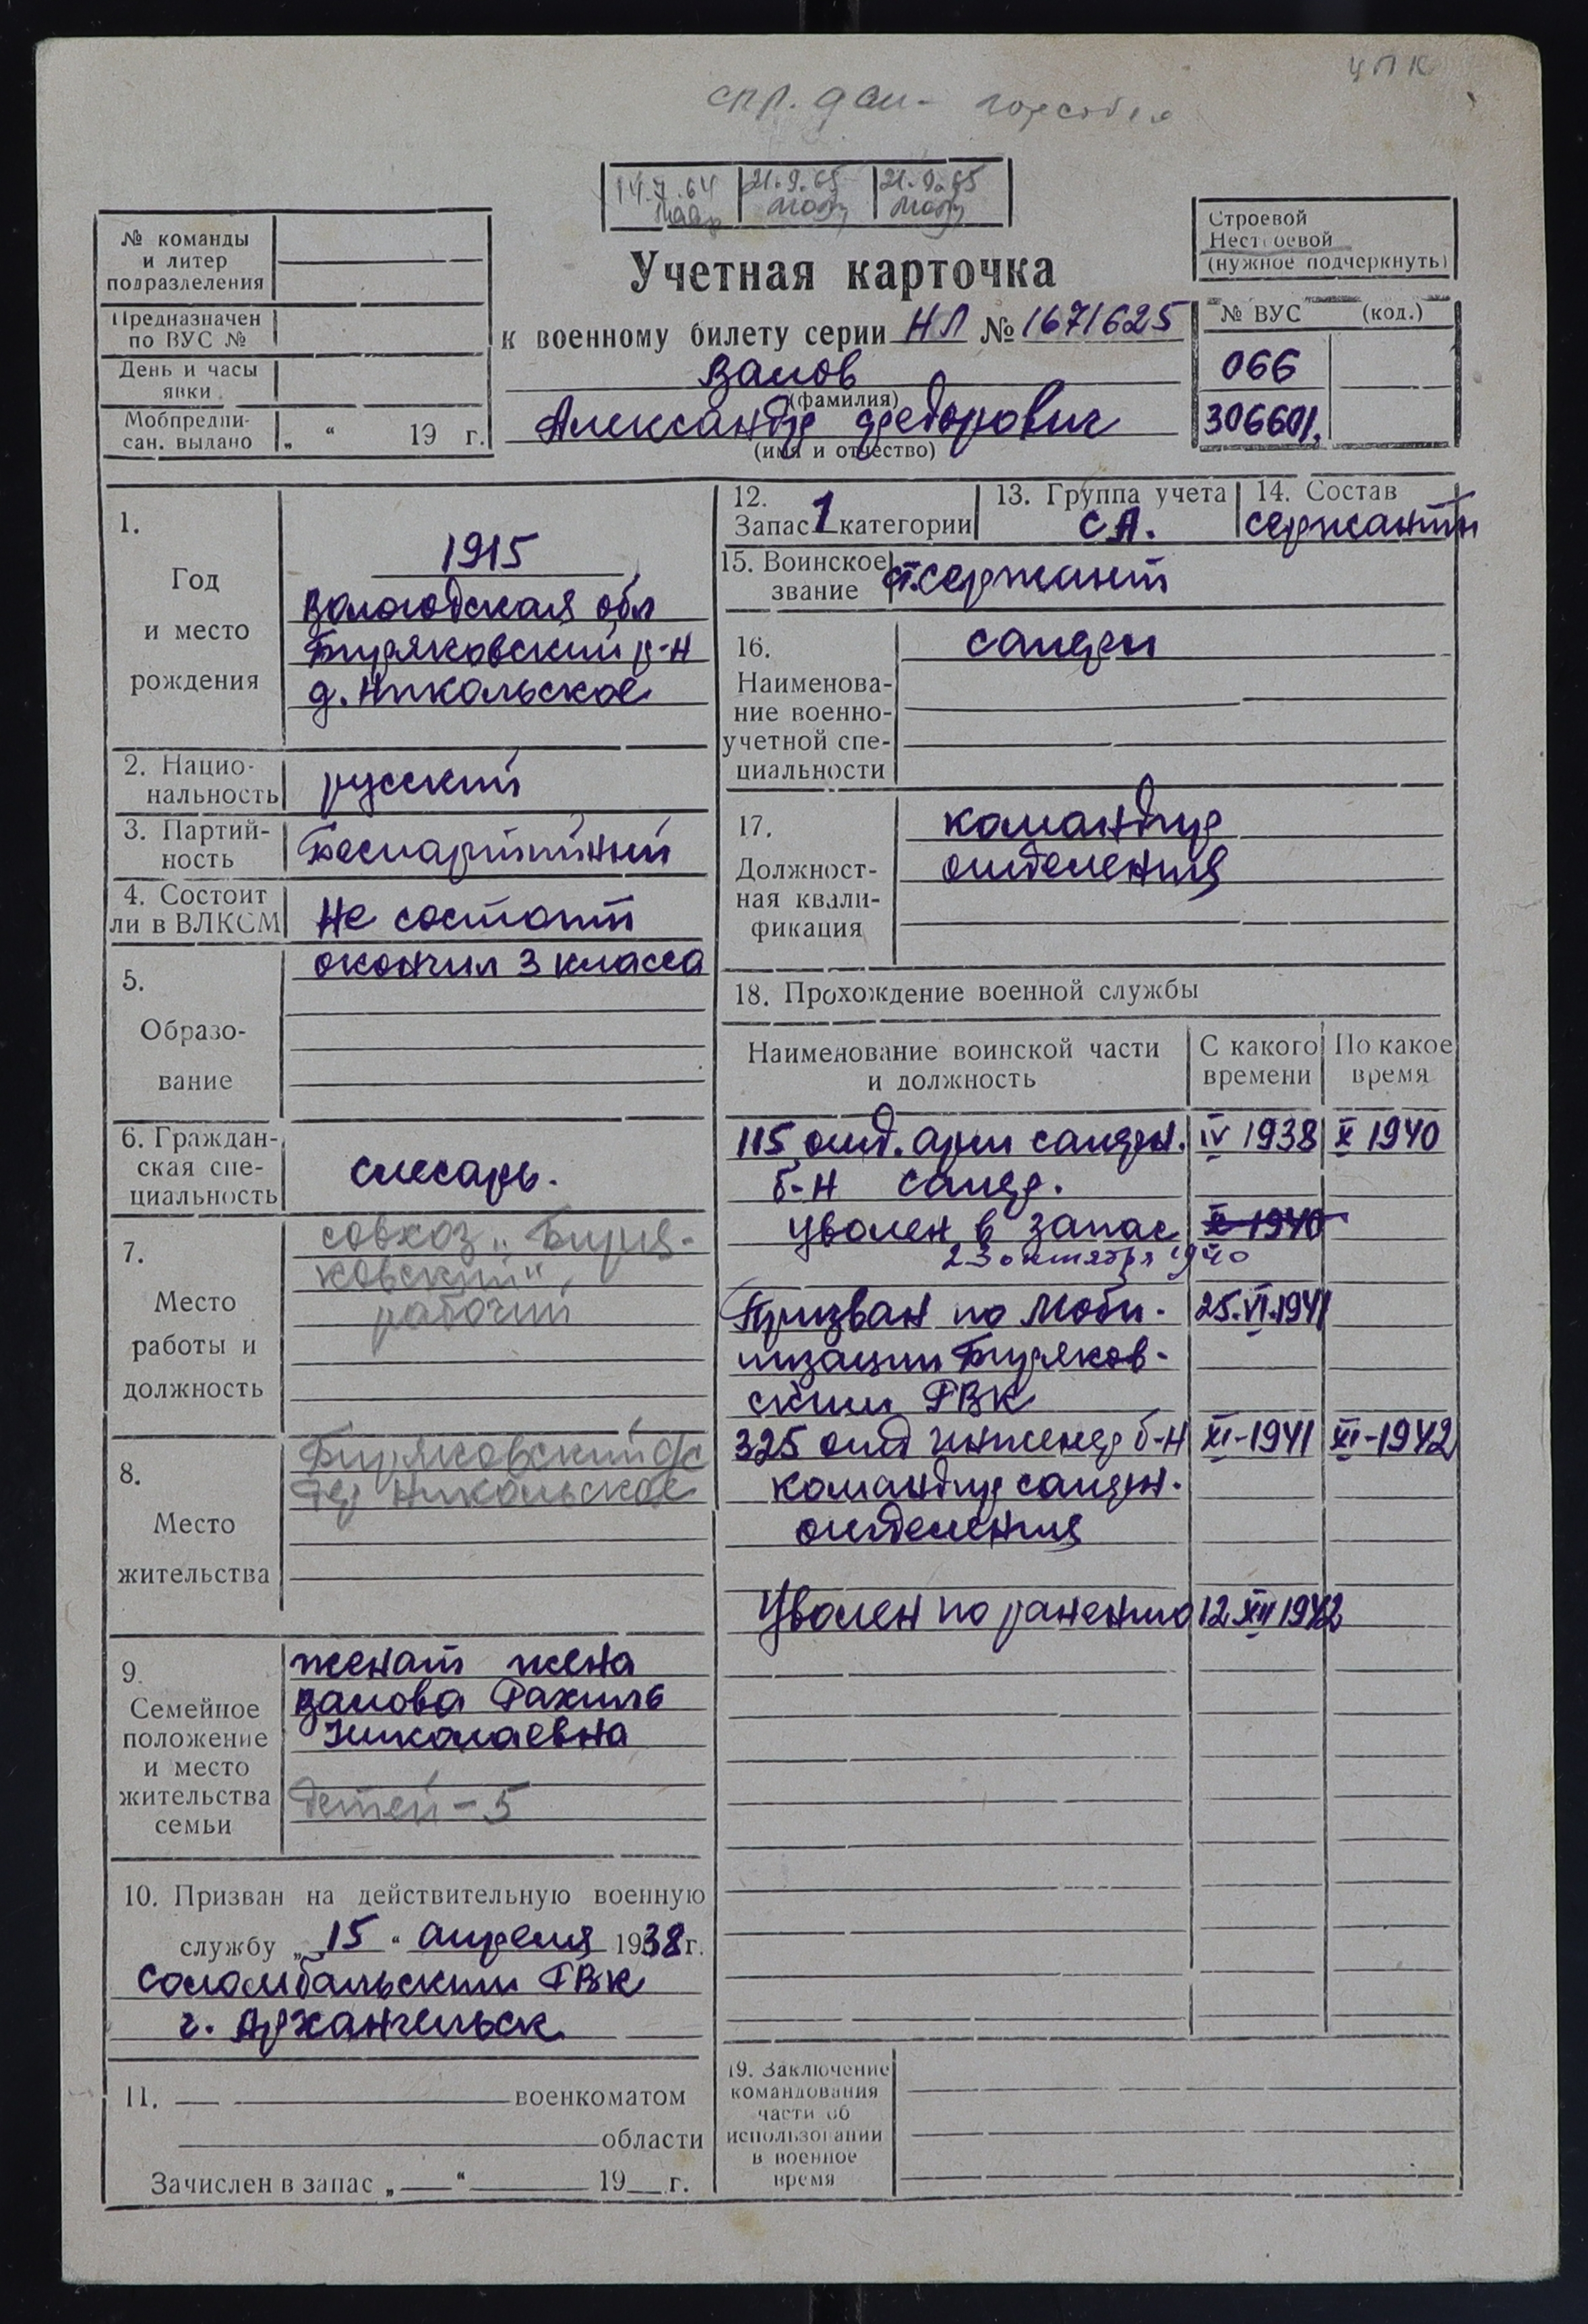 ЦПК
спр. дан-
14.7.64 21.9.65 21.9.65
№ команды
и литер
подразделения
Предназначен
по ВУС №
День и часы
явки
Мобпредпи-
сан. выдано „ “ 19 г.
Учетная карточка
к военному билету серии НЛ № 1671625
Валов
(фамилия)
Александр Федорович
(имя и отчество)
Строевой
Нестроевой
(нужное подчеркнуть)
№ ВУС (код.)
066
306601.
1.
Год
и место
рождения
1915
Вологодская обл
Биряковский р-н
д. Никольское
2. Нацио-
нальность
русский
3. Партий-
ность
Беспартийный
4. Состоит
ли в ВЛКСМ
Не состоит
5.
Образо-
вание
окончил 3 класса
6. Граждан-
ская спе-
циальность
слесарь.
7.
Место
работы и
должность
совхоз „Биря-
ковский“,
рабочий
8.
Место
жительства
Биряковский с/с
дер Никольское
9.
Семейное
положение
и место
жительства
семьи
женат жена
Валова Рахиль
Николаевна
детей – 5
10. Призван на действительную военную
службу „ 15 “ апреля 1938 г.
Соломбальским РВК
г. Архангельск
11. военкоматом
области
Зачислен в запас „ “ 19 г.
12.
Запас 1 категории
13. Группа учета
СА.
14. Состав
сержантск
15. Воинское
звание
ст.сержант
16.
Наименова-
ние военно-
учетной спе-
циальности
сапёры
17.
Должност-
ная квали-
фикация
командир
отделения
18. Прохождение военной службы
Наименование воинской части
и должность
С какого
времени
По какое
время
115 отд. арм саперн. IV 1938 X 1940
б-н сапер.
Уволен в запас X 1940
23 октября 1940
Призван по моби- 25.VI.1941
лизации Биряков-
ским РВК
325 отд инженер б-н XI-1941 XI-1942
командир саперн.
отделения
Уволен по ранению 12 XII 1942
19. Заключение
командования
части об
использовании
в военное
время